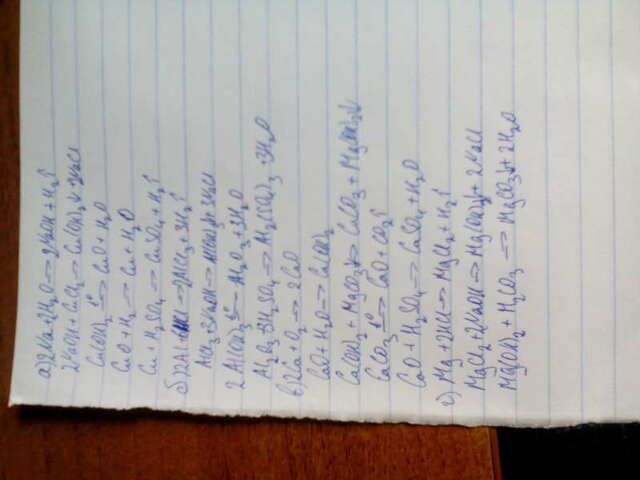 а) 2Na + 2H₂O → 2NaOH + H₂↑
2NaOH + CuCl₂ → Cu(OH)₂↓ + 2NaCl
Cu(OH)₂ t°→ CuO + H₂O
CuO + H₂ → Cu + H₂O
Cu + H₂SO₄ → CuSO₄ + H₂↑
б) 2Al + → 2AlCl₃ + 3H₂↑
AlCl₃ + 3NaOH → Al(OH)₃↓ + 3NaCl
2Al(OH)₃ t°→ Al₂O₃ + 3H₂O
Al₂O₃ + 3H₂SO₄ → Al₂(SO₄)₃ + 3H₂O
в) 2Ca + O₂ → 2CaO
CaO + H₂O → Ca(OH)₂
Ca(OH)₂ + MgCO₃↓ → CaCO₃ + Mg(OH)₂↓
CaCO₃ t°→ CaO + CO₂↑
CaO + H₂SO₄ → CaSO₄ + H₂O
г) Mg + 2HCl → MgCl₂ + H₂↑
MgCl₂ + 2NaOH → Mg(OH)₂↓ + 2NaCl
Mg(OH)₂ + H₂CO₃ → MgCO₃↓ + 2H₂O